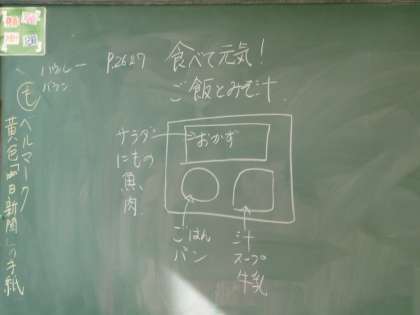 P26 27 食べて元気！
ご飯とみそ汁
バレー
バケン
も
ベルマーク
黄色「毎日新聞」の手紙
サラダ
にもの
魚、
肉
おかず
ごはん
パン
汁
スープ
牛乳